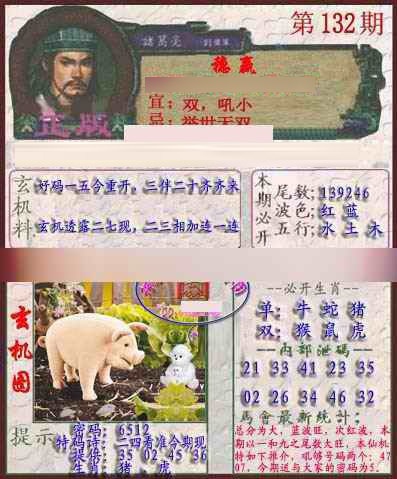 第132期
諸葛亮
稳赢
宜：双，吼小
忌：举世无双
正版
玄机料
好码一五合重开，三伴二十齐齐来
玄机透露二七现，二三相加连一连
本期必开
尾数：139246
波色：红 蓝
五行：水 土 木
玄机图
必开生肖
单：牛 蛇 猪
双：猴 鼠 虎
内部泄码
21 33 41 23 35
02 26 34 46 32
馬會最新统计：
总分为大，蓝波旺，次红波，本
期以一和九之尾数大旺，本仙机
特如下推介，吼够号码两个：47
07，今期送与大家的密码为5.
提示
密码：6512
特码诗：二四看准今期现
35 02 45 36
生肖：猪、虎